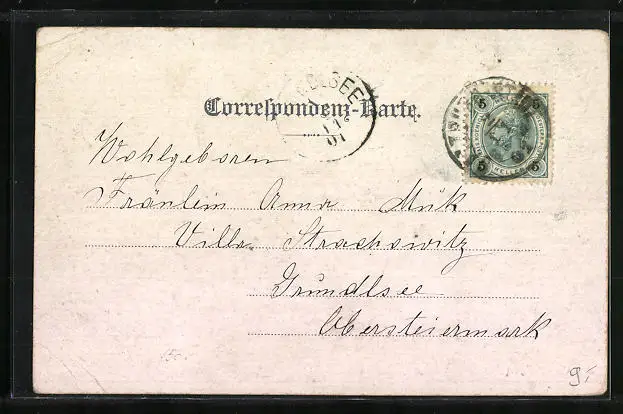 Correspondenz-Karte.
DLSEE
11
01
5 5
5 5
HELLER
Wohlgeboren
Fräulein Anna Mük
Villa Strachowitz
Grundlsee
Obersteiermark
9.-